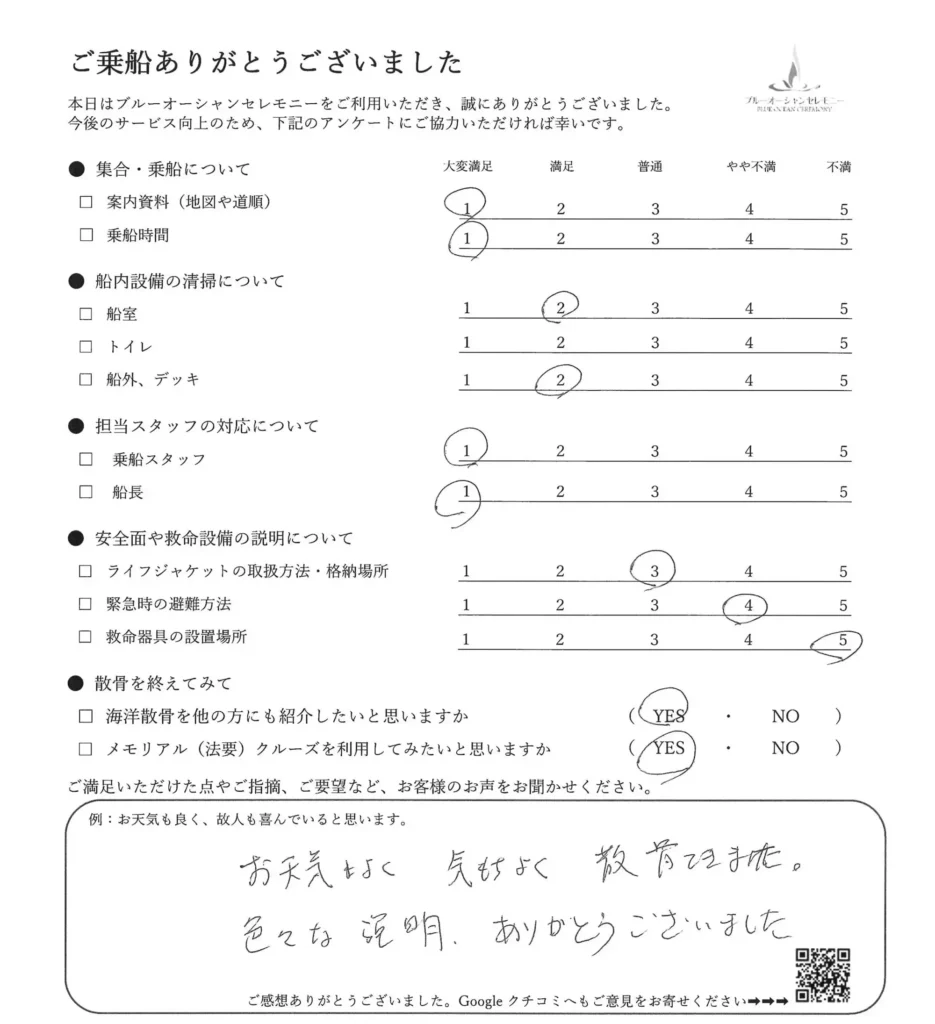 ご乗船ありがとうございました
ブルーオーシャンセレモニー
BLUE OCEAN CEREMONY
本日はブルーオーシャンセレモニーをご利用いただき、誠にありがとうございました。
今後のサービス向上のため、下記のアンケートにご協力いただければ幸いです。
● 集合・乗船について 大変満足 満足 普通 やや不満 不満
□ 案内資料（地図や道順） 1 2 3 4 5
□ 乗船時間 1 2 3 4 5
● 船内設備の清掃について
□ 船室 1 2 3 4 5
□ トイレ 1 2 3 4 5
□ 船外、デッキ 1 2 3 4 5
● 担当スタッフの対応について
□ 乗船スタッフ 1 2 3 4 5
□ 船長 1 2 3 4 5
● 安全面や救命設備の説明について
□ ライフジャケットの取扱方法・格納場所 1 2 3 4 5
□ 緊急時の避難方法 1 2 3 4 5
□ 救命器具の設置場所 1 2 3 4 5
● 散骨を終えてみて
□ 海洋散骨を他の方にも紹介したいと思いますか （ YES ・ NO ）
□ メモリアル（法要）クルーズを利用してみたいと思いますか （ YES ・ NO ）
ご満足いただけた点やご指摘、ご要望など、お客様のお声をお聞かせください。
例：お天気も良く、故人も喜んでいると思います。
お天気もよく 気もちよく 散骨できました。
色々な説明、ありがとうございました
ご感想ありがとうございました。Google クチコミへもご意見をお寄せください➡➡➡